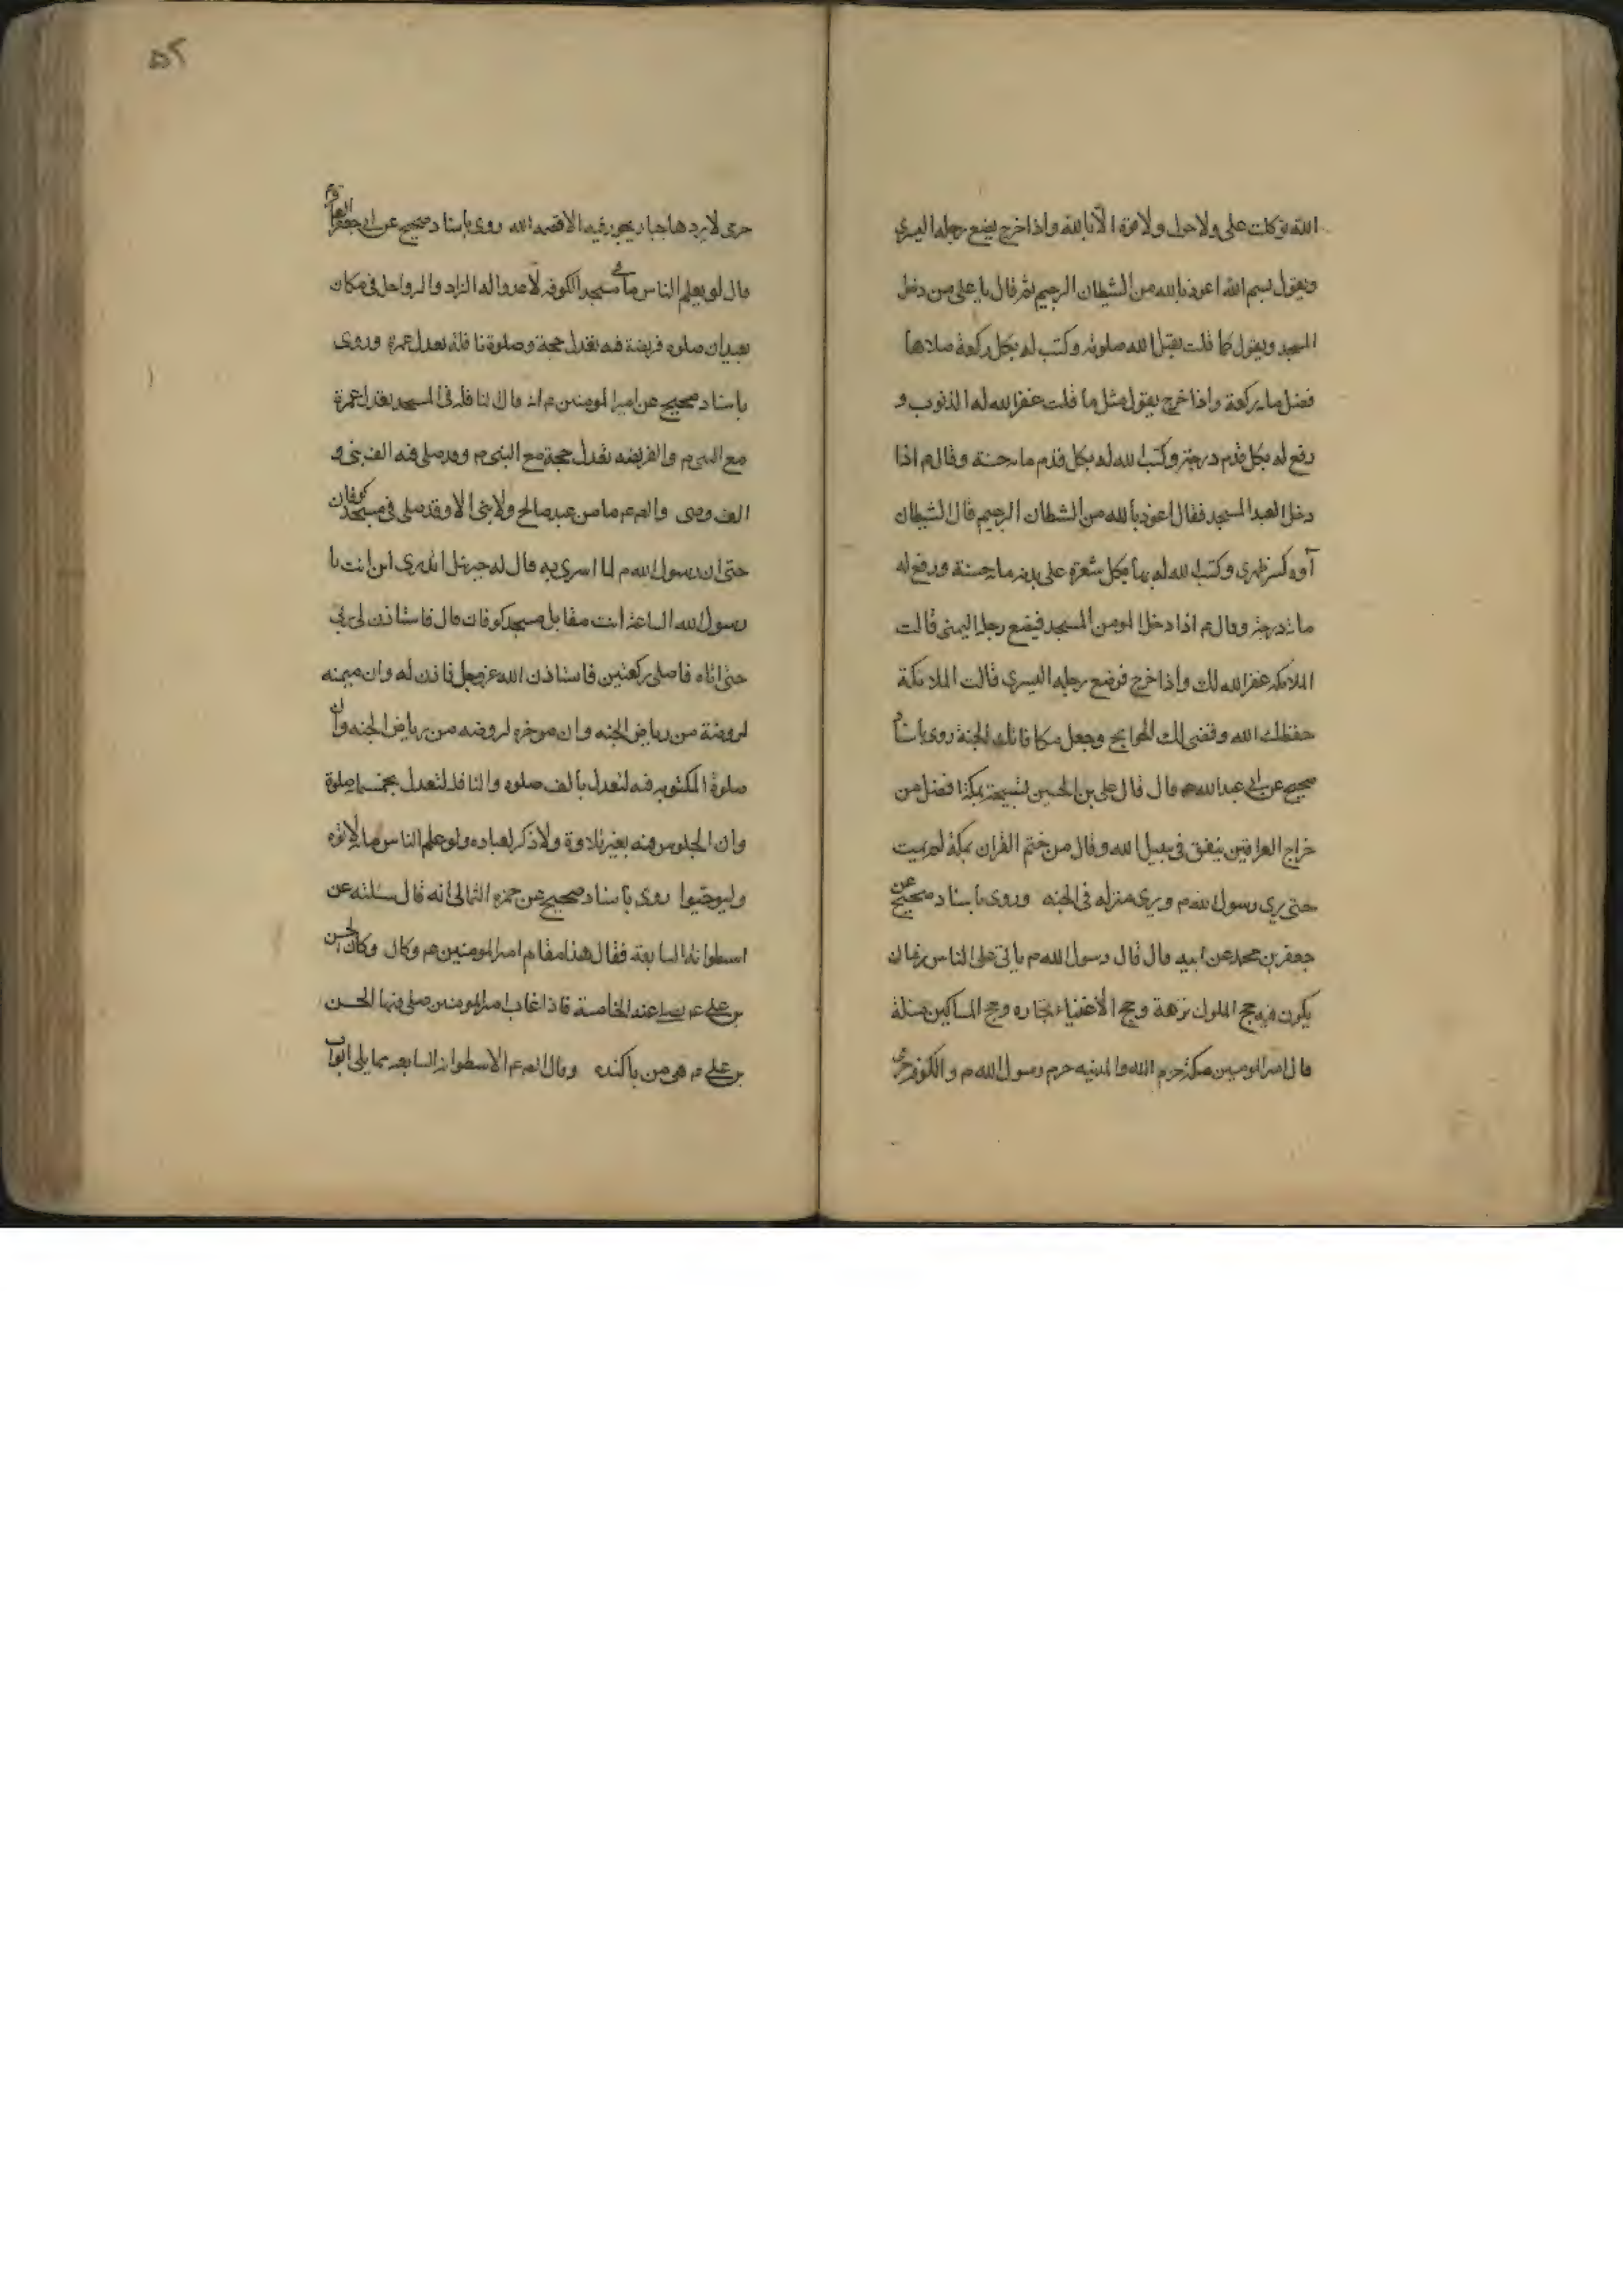 الله توكلت على ولا حول ولا قوة الا بالله واذا خرج يضع رجله اليسرى
ويقول بسم الله اعوذ بالله من الشيطان الرجيم ثم قال يا على من دخل
المسجد ويقول كما قلت يقبل الله صلوته وكتب له بكل ركعة صلاها
فضل مايه ركعة واذا خرج يقول مثل ما قلت غفر الله له الذنوب و
رفع له بكل قدم درجة وكتب الله له بكل قدم مايه حسنة وقال م اذا
دخل العبد المسجد فقال اعوذ بالله من الشيطان الرجيم قال الشيطان
آوه كسر ظهرى وكتب الله له بها بكل شعرة على بدنه مايه حسنة ورفع له
مائه درجة وقال م اذا دخل المومن المسجد فيضع رجله اليمنى قالت
الملائكه غفر الله لك واذا خرج فوضع رجله اليسرى قالت الملائكة
حفظك الله وقضى لك الحوايج وجعل مكافاتك الجنة روى باسناد
صحيح عن ابى عبد الله قال قال على بن الحسين تسبيحة بمكة افضل من
خراج العراقين ينفق فى سبيل الله وقال من ختم القران بمكة لم يميت
حتى يرى رسول الله م ويرى منزله فى الجنه وروى باسناد صحيح عن
جعفر بن محمد عن ابيه قال قال رسول الله م ياتى على الناس زمان
يكون فيه حج الملوك نزهة وحج الاغنياء تجاره وحج المساكين مسئلة
قال امير المومنين مكة حرم الله والمدينه حرم رسول الله م والكوفه حرمى
٥٢
حرمى لا يردها جبار يجور فيه الا قصمه الله روى باسناد صحيح عن ابى جعفر
قال لو يعلم الناس ما فى مسجد الكوفه لاعدوا له الزاد والرواحل فى مكان
بعيد ان صلوه فريضة فيه تعدل حجة وصلوة نافلة تعدل عمرة وروى
باسناد صحيح عن امير المومنين م انه قال النافله فى المسجد تعدل عمرة
مع النبى م والفريضه تعدل حجة مع النبى م وقد صلى فيه الف نبى و
الف وصى ما من عبد صالح ولا نبى الا وقد صلى فى مسجد كوفان
حتى ان رسول الله م لما اسرى به قال له جبرئيل اتدرى اين انت يا
رسول الله الساعة انت مقابل مسجد كوفان قال فاستاذن لى ربى
حتى اتاه فاصلى ركعتين فاستاذن الله عز وجل فاذن له وان ميمنه
لروضة من رياض الجنه وان موخره لروضه من رياض الجنه وان
صلوة المكتوبه فيه لتعدل بالف صلوه والنافله لتعدل بخمسمايه صلوة
وان الجلوس فيه بغير تلاوة ولا ذكر لعباده ولو علم الناس ما فيه لاتوه
ولو حبوا روى باسناد صحيح عن حمزه الثمالى انه قال سئلته عن
اسطوانة السابعة فقال هذا مقام امير المومنين م وكان وكان الحسن
بن على م يصلى عند الخامسة فاذا غاب امير المومنين صلى فيها الحسن
بن على م هى من باكنده وقال الاسطوانه السابعه مما يلى ابواب